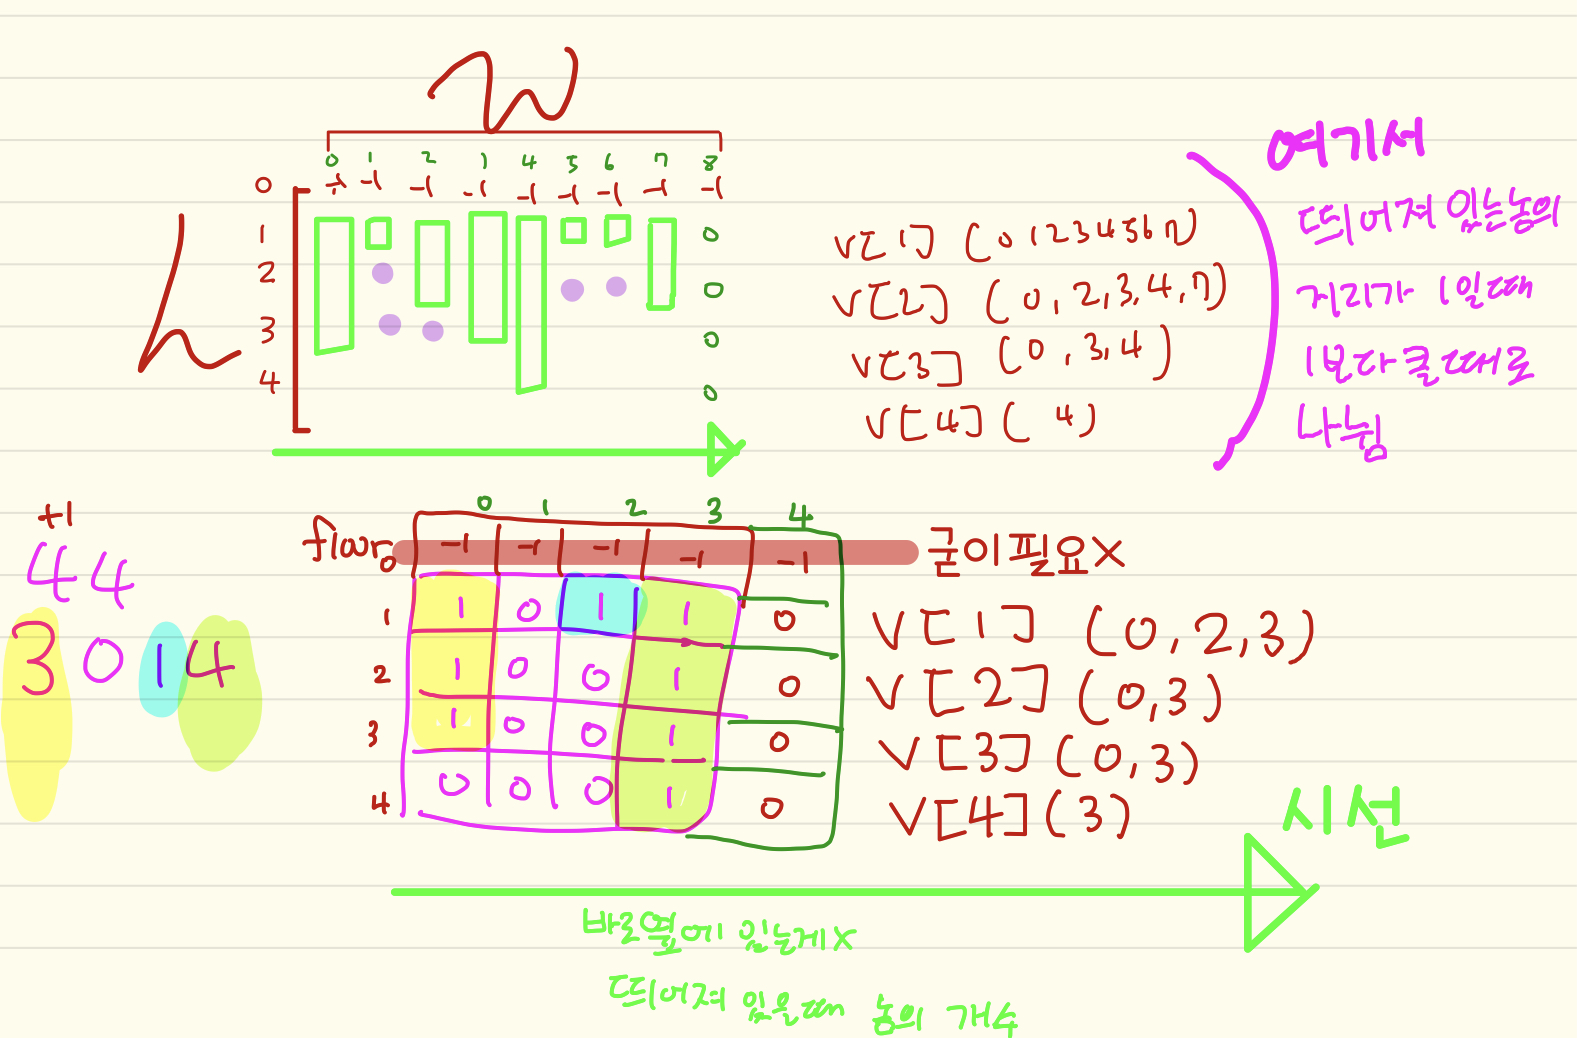 W
0 1 2 3 4 5 6 7 8
0 -1 -1 -1 -1 -1 -1 -1 -1 -1
h
1 0
2 0
3 0
4 0
V[1] (0 1 2 3 4 5 6 7)
V[2] (0,2,3,4,7)
V[3] (0,3,4)
V[4] (4)
여기서
띄어져 있는놈의
거리가 1일때
1보다 클때로
나뉨
+1
44
3 0 1 4
0 1 2 3 4
floor 0 -1 -1 -1 -1 -1 굳이필요X
1 1 0 1 1 0 V[1] (0,2,3)
2 1 0 0 1 0 V[2] (0,3)
3 1 0 0 1 0 V[3] (0,3)
4 0 0 0 1 0 V[4] (3)
시선
바로옆에 있는게X
띄어져 있을때 놈의 개수